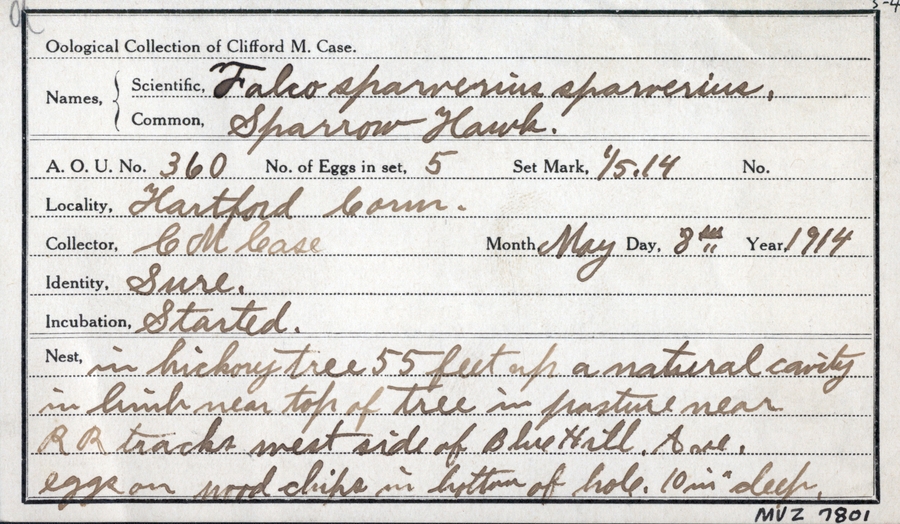 Oological Collection of Clifford M. Case.
Names, { Scientific, Falco sparverius sparverius.
Common, Sparrow Hawk.
A. O. U. No. 360 No. of Eggs in set, 5 Set Mark, 1/5.14 No.
Locality, Hartford Conn.
Collector, C M Case Month May Day, 8th Year, 1914
Identity, Sure.
Incubation, Started.
Nest, in hickory tree 55 feet up a natural cavity
in limb near top of tree in pasture near
R R tracks west side of Blue Hill. Ave.
eggs on wood chips in bottom of hole. 10 in" deep.
MVZ 7801